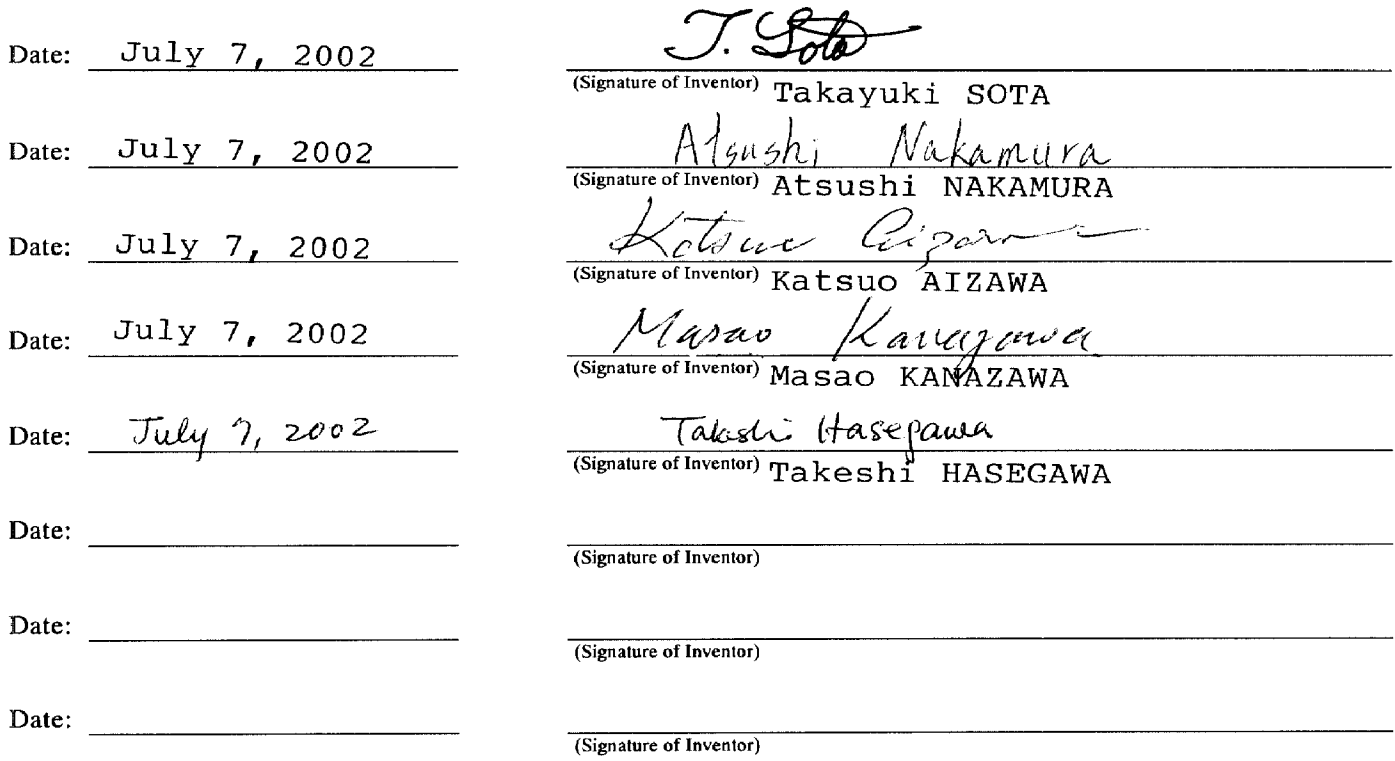 Date: July 7, 2002 T. Sota
(Signature of Inventor) Takayuki SOTA
Date: July 7, 2002 Atsushi Nakamura
(Signature of Inventor) Atsushi NAKAMURA
Date: July 7, 2002 Katsuo Aizawa
(Signature of Inventor) Katsuo AIZAWA
Date: July 7, 2002 Masao Kanazawa
(Signature of Inventor) Masao KANAZAWA
Date: July 7, 2002 Takeshi Hasegawa
(Signature of Inventor) Takeshi HASEGAWA
Date:
(Signature of Inventor)
Date:
(Signature of Inventor)
Date:
(Signature of Inventor)